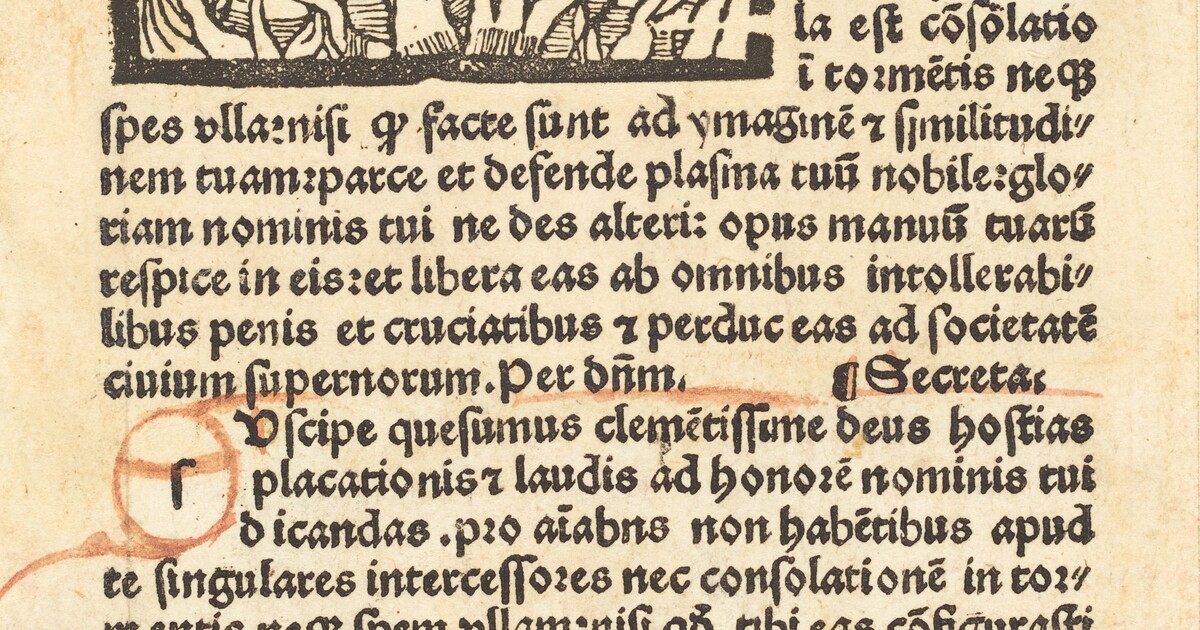 la eſt cõſolatio
ĩ tormẽtis neqꝫ
ſpes vlla: niſi ꝙ facte ſunt ad ymaginẽ ⁊ ſimilitudi⸗
nem tuam: parce et defende plaſma tuũ nobile: glo⸗
riam nominis tui ne des alteri: opus manuũ tuarũ
reſpice in eis: et libera eas ab omnibus intollerabi⸗
libus penis et cruciatibus ⁊ perduc eas ad ſocietatẽ
ciuium ſupernorum. Per dñm. ¶ Secreta:
ſ Vſcipe queſumus clemẽtiſſime deus hoſtias
placationis ⁊ laudis ad honorẽ nominis tui
dicandas. pro aĩabns non habẽtibus apud
te ſingulares interceſſores nec conſolationẽ in tor⸗
mentis neqꝫ ſpem vllam: niſi tibi eas cõfiguraſti